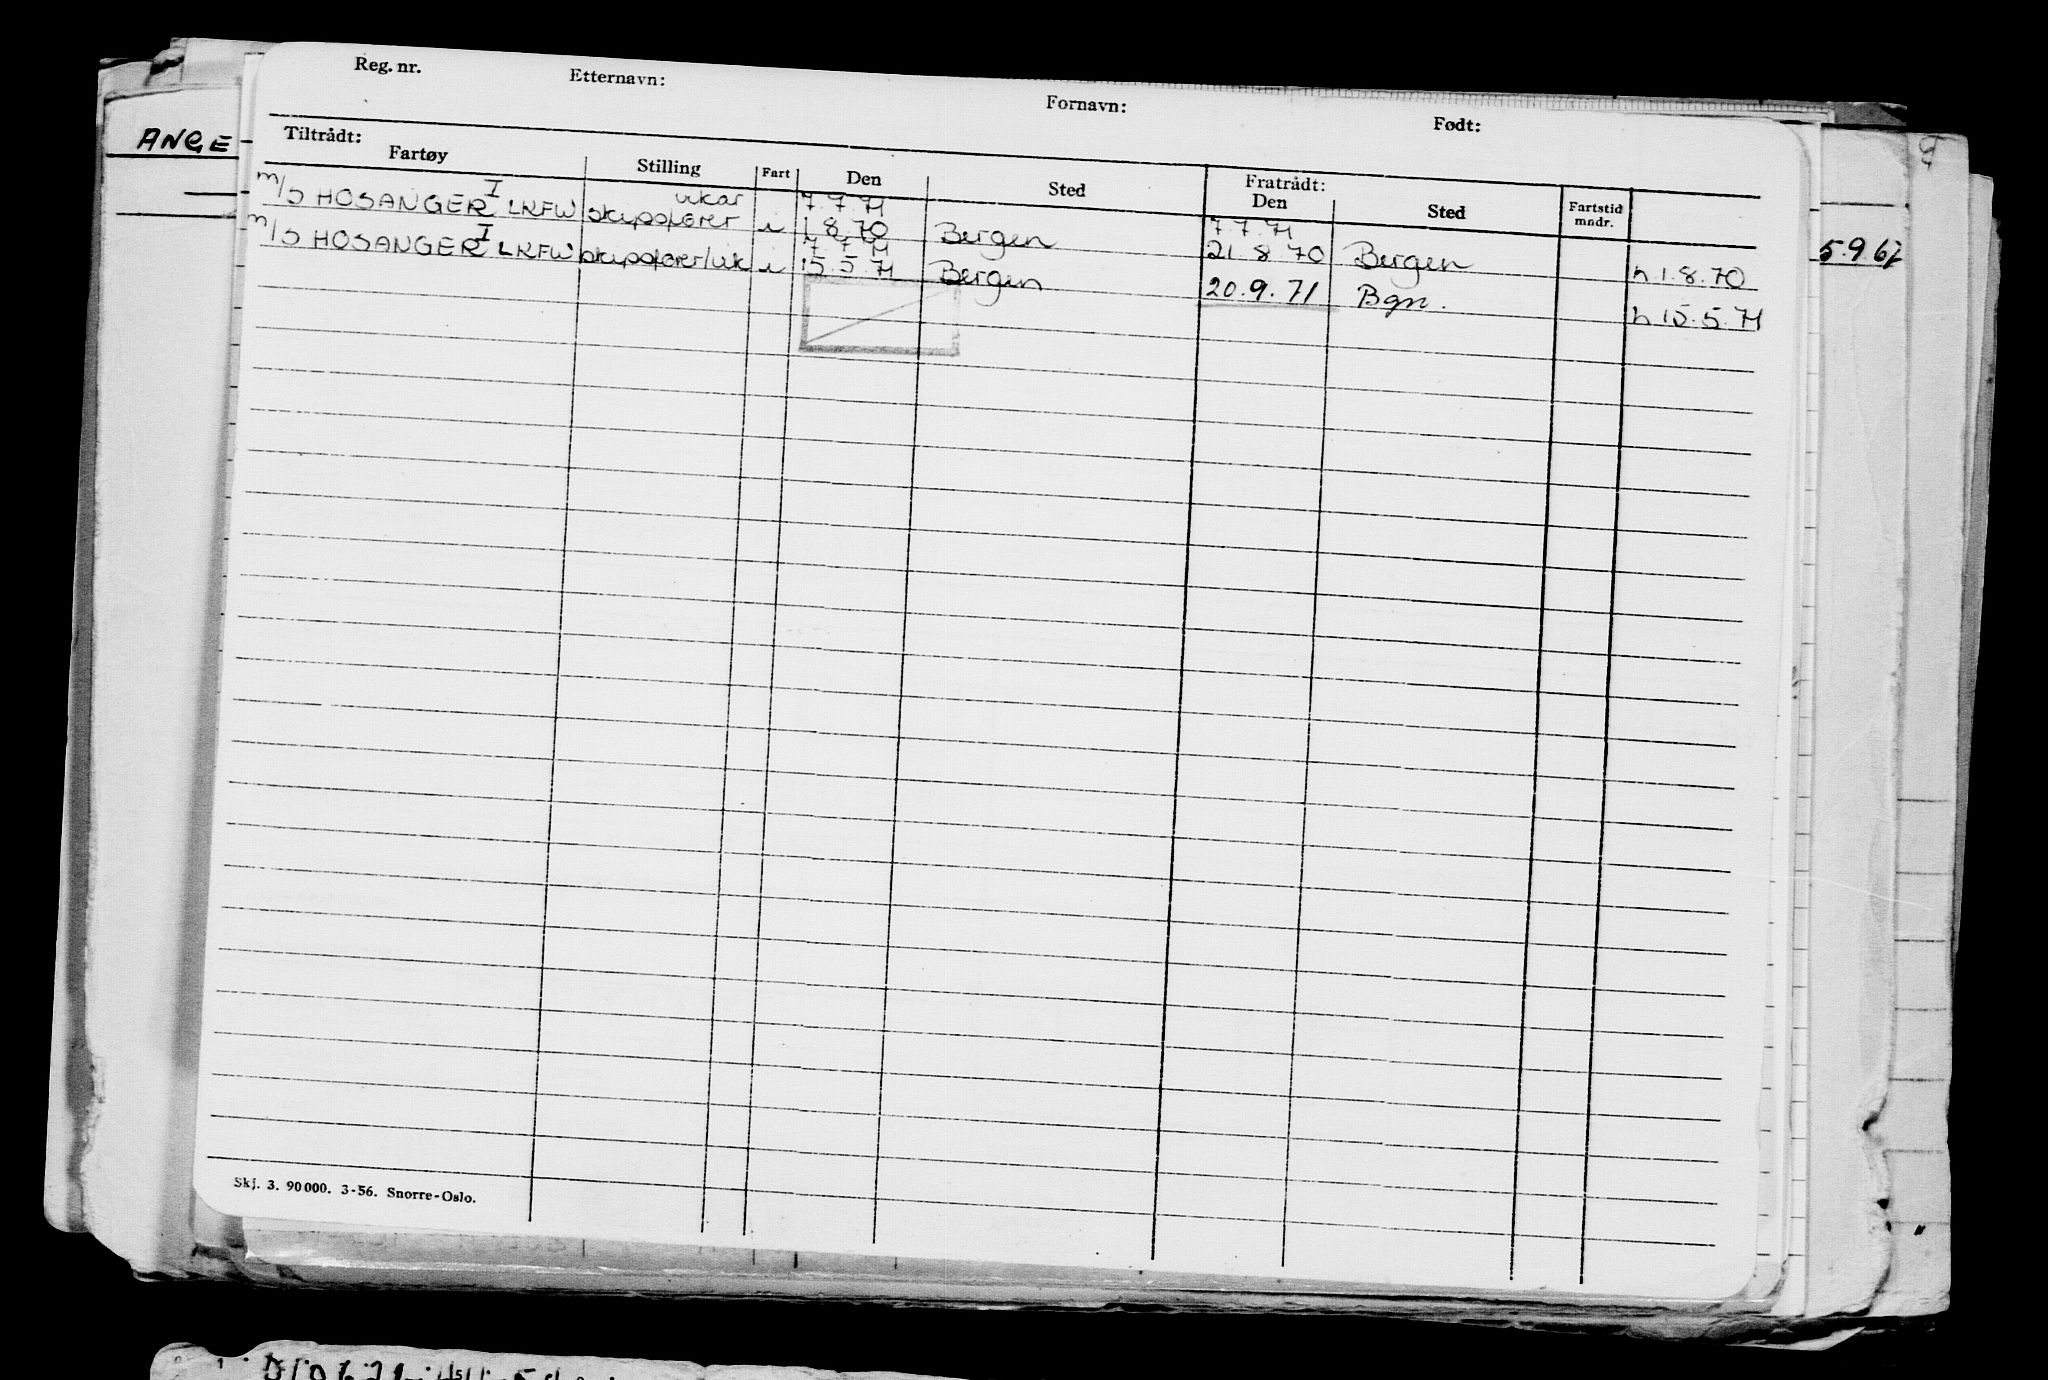 Reg. nr. Etternavn: Fornavn: Født:
Tiltrådt: Fratrådt:
Fartøy Stilling Fart Den Sted Den Sted Fartstid mndr.
vikar 7.7.71 7.7.71
m/s HOSANGER I LKFW skipsfører i 1.8.70 Bergen 21.8.70 Bergen h 1.8.70
7.7.71
m/s HOSANGER I LKFW skipsfører/vik i 15.5.71 Bergen 20.9.71 Bgn. h 15.5.71
Skj. 3. 90000. 3-56. Snorre-Oslo.
ANGE
5.9.67